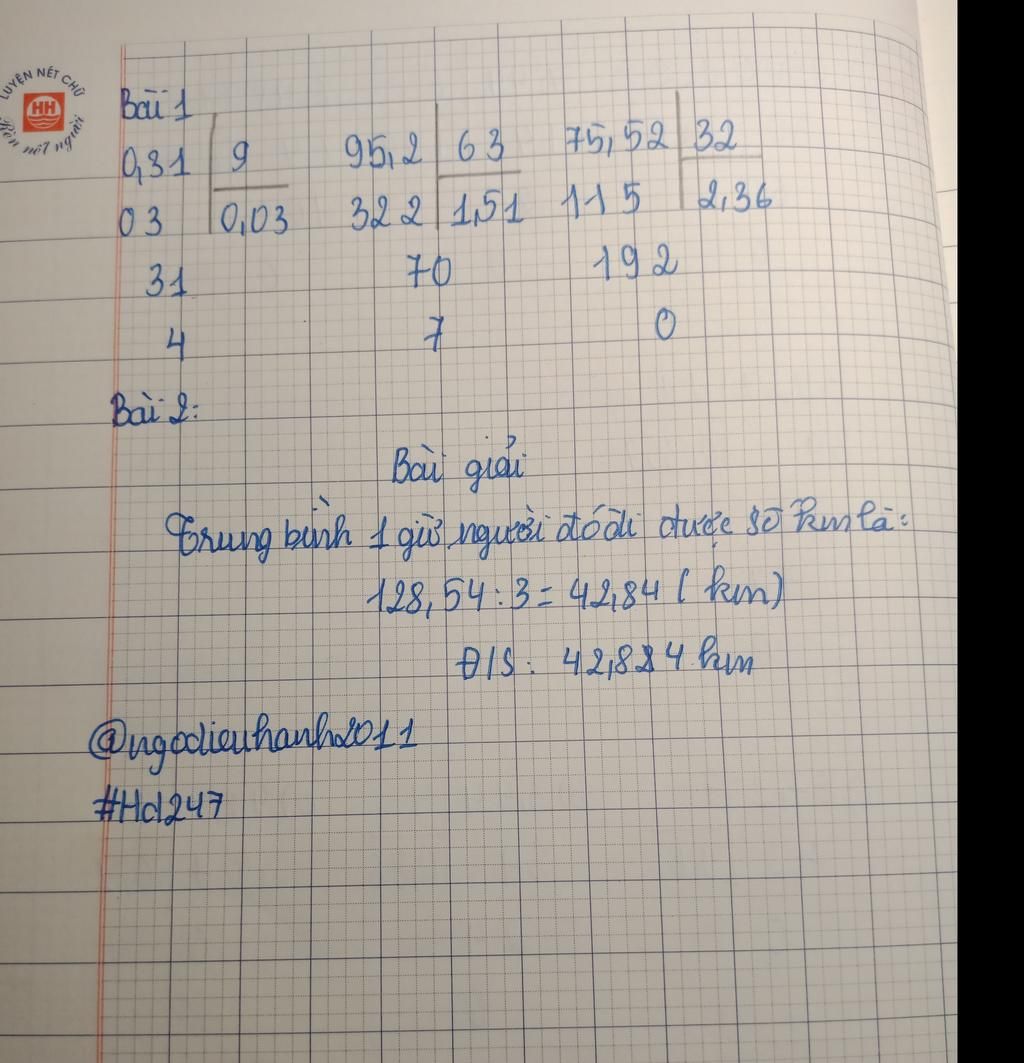 LUYỆN NÉT CHỮ
HH
Rèn nết người
Bài 1
0,31 9 95,2 63 75,52 32
03 0,03 322 1,51 115 2,36
31 70 192
4 7 0
Bài 2:
Bài giải
Trung bình 1 giờ người đó đi được số km là:
128,54 : 3 = 42,84 ( km)
Đ/S: 42,824 km
@ngodieuhanh2011
#Hd247